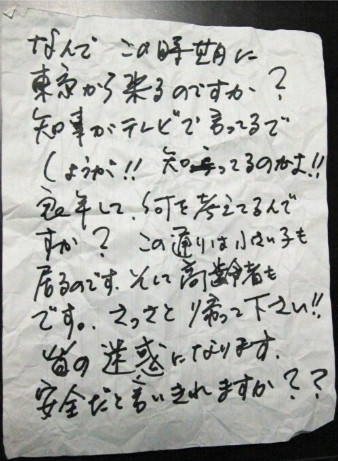 なんで この時期に
東京から来るのですか?
知事がテレビで言ってるで
しょうが!! 知ってるのかよ!!
年して、何を考えてるんで
すか? この通りは小さい子も
居るのです。そして高齢者も
です。さっさと帰って下さい!!
皆の迷惑になります。
安全だと言いきれますか??